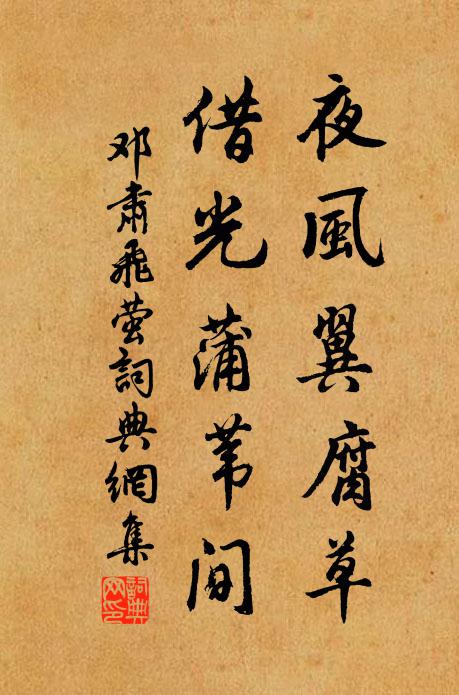 夜風翼腐草
借光蒲苇间
邓肃飛萤詞典網集
詞典
网印